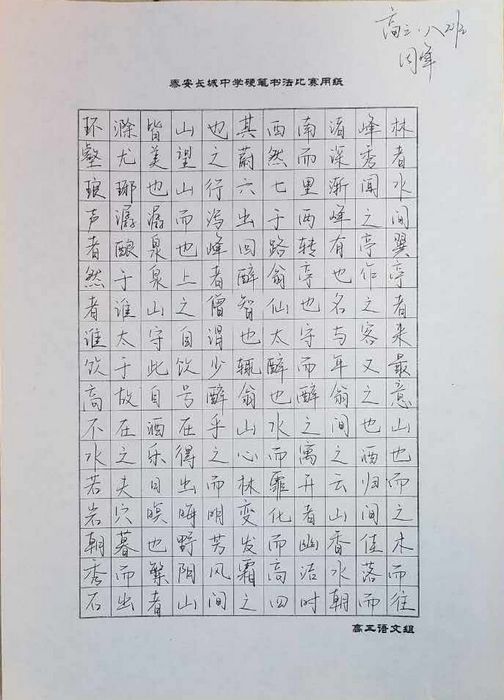 高三·八班
泰安长城中学硬笔书法比赛用纸
环滁皆山也其西南渚峰林
壑尤美望之蔚然而深秀者
琅琊也山行六七里渐闻水
声潺潺而泻出于两峰之间
者酿泉也峰回路转有亭翼
然于泉上者醉翁亭也作亭
者谁山之僧智仙也名之者
谁太守自谓也太守与客来
饮于此饮少辄醉而年又最
高故自号醉翁也醉翁之意
不在酒在乎山水之间也山
水之乐得之心而寓之酒也
若夫日出而林霏开云归而
岩穴暝晦明变化者山间之
朝暮也野芳发而幽香佳木
秀而繁阴风霜高洁水落而
石出者山间之四时朝而往
高三语文组